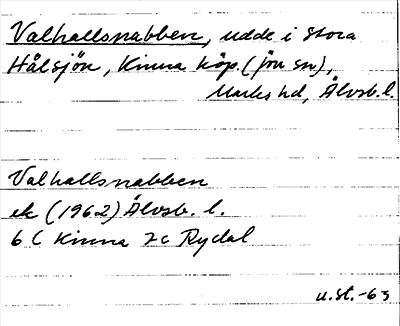 Valhallsnabben, udde i Stora
Hålsjön, Kinna köp. (jön sn),
Marks hd, Älvsb. l.
Valhallsnabben
ek (1962) Älvsb. l.
6 C Kinna 7c Rydal
u.st.-63